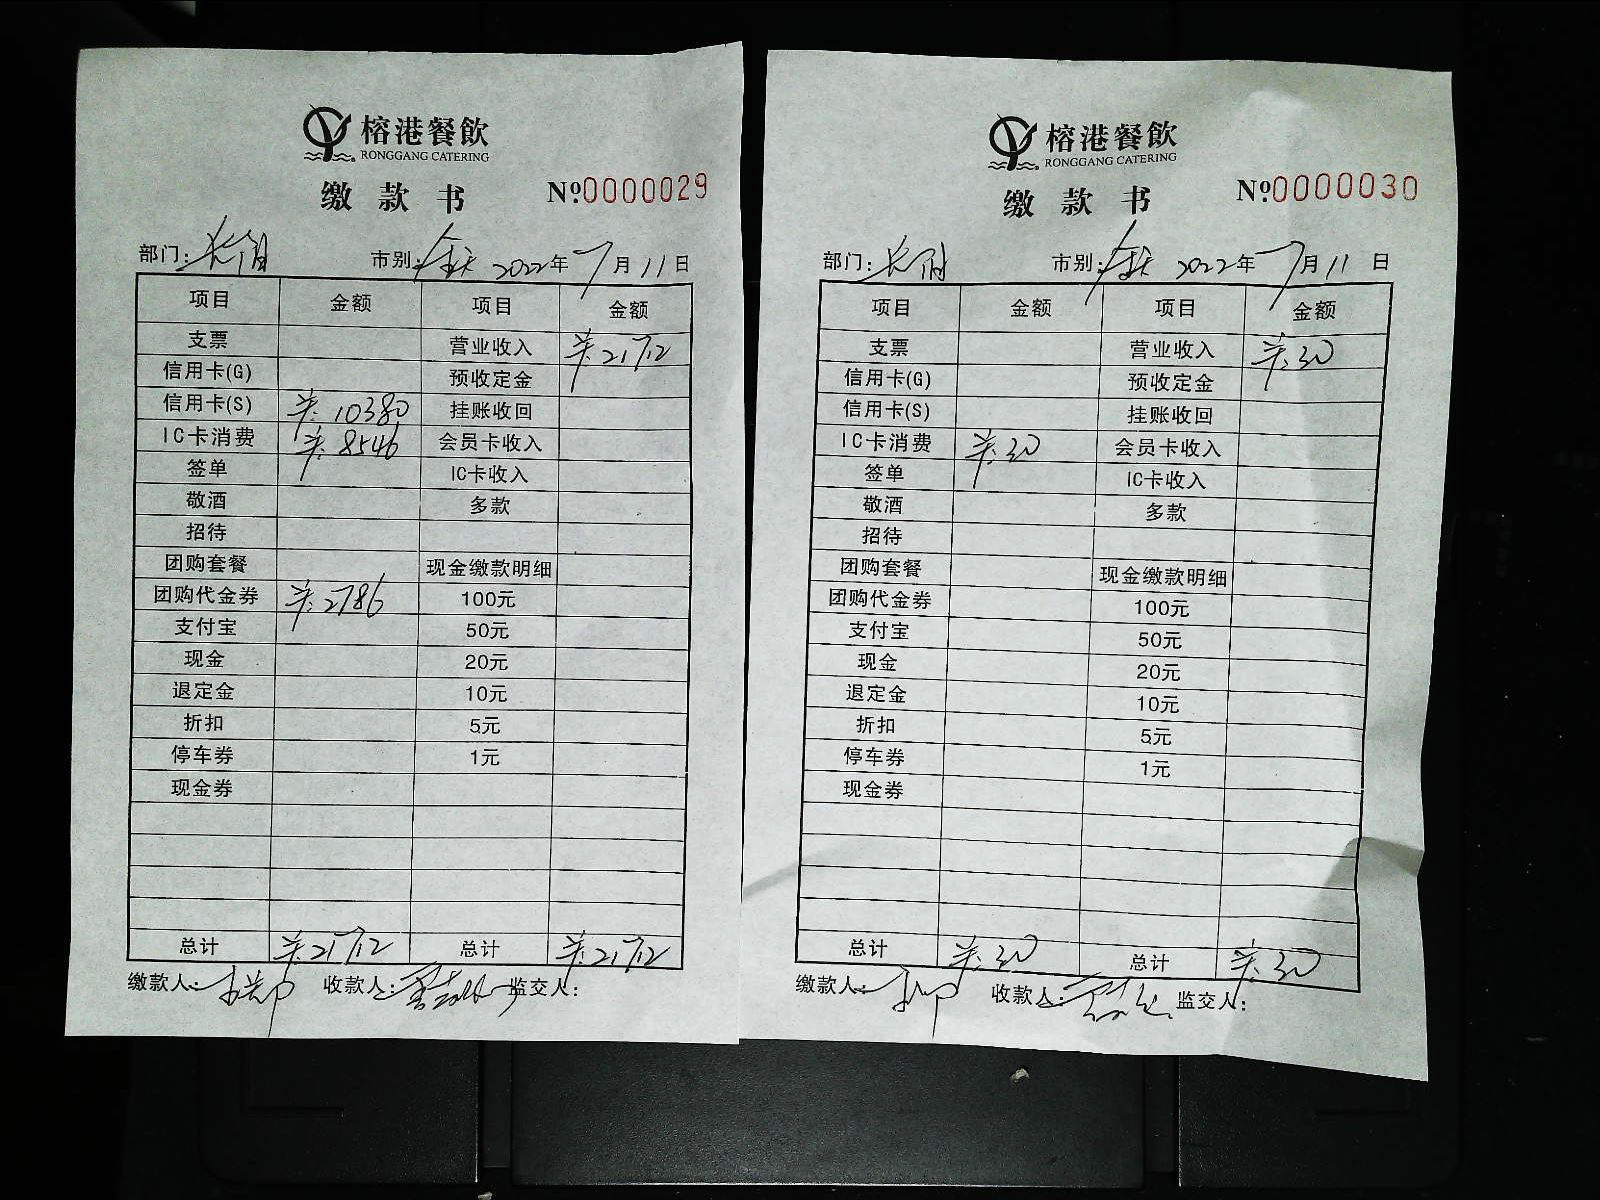 榕港餐飲
RONGGANG CATERING
缴款书 №0000029
部门: 市别: 全天 2022年7月11日
项目 金额 项目 金额
支票 营业收入 ￥:21712
信用卡(G) 预收定金
信用卡(S) ￥:10380 挂账收回
IC卡消费 ￥:8546 会员卡收入
签单 IC卡收入
敬酒 多款
招待
团购套餐 现金缴款明细
团购代金券 ￥:2786 100元
支付宝 50元
现金 20元
退定金 10元
折扣 5元
停车券 1元
现金券
总计 ￥:21712 总计 ￥:21712
缴款人: 收款人: 监交人:
榕港餐飲
RONGGANG CATERING
缴款书 №0000030
部门: 市别: 全天 2022年7月11日
项目 金额 项目 金额
支票 营业收入 ￥:30
信用卡(G) 预收定金
信用卡(S) 挂账收回
IC卡消费 ￥:30 会员卡收入
签单 IC卡收入
敬酒 多款
招待
团购套餐 现金缴款明细
团购代金券 100元
支付宝 50元
现金 20元
退定金 10元
折扣 5元
停车券 1元
现金券
总计 ￥:30 总计 ￥:30
缴款人: 收款人: 监交人: